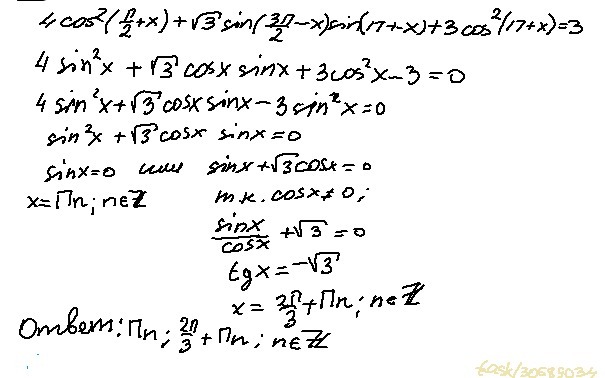 4cos²(π/2+x)+√3 sin(3π/2-x)sin(π+x)+3cos²(π+x)=3
4 sin²x + √3 cosx sinx + 3cos²x-3=0
4 sin²x+√3 cosx sinx-3 sin²x=0
sin²x +√3 cosx sinx=0
sinx=0 или sinx+√3cosx=0
x=Пn; n∈Z т.к. cosx≠0;
sinx/cosx +√3 =0
tgx=-√3
x= 2π/3+Пn; n∈Z
Ответ: Пn; 2π/3+Пn; n∈Z
task/30688034